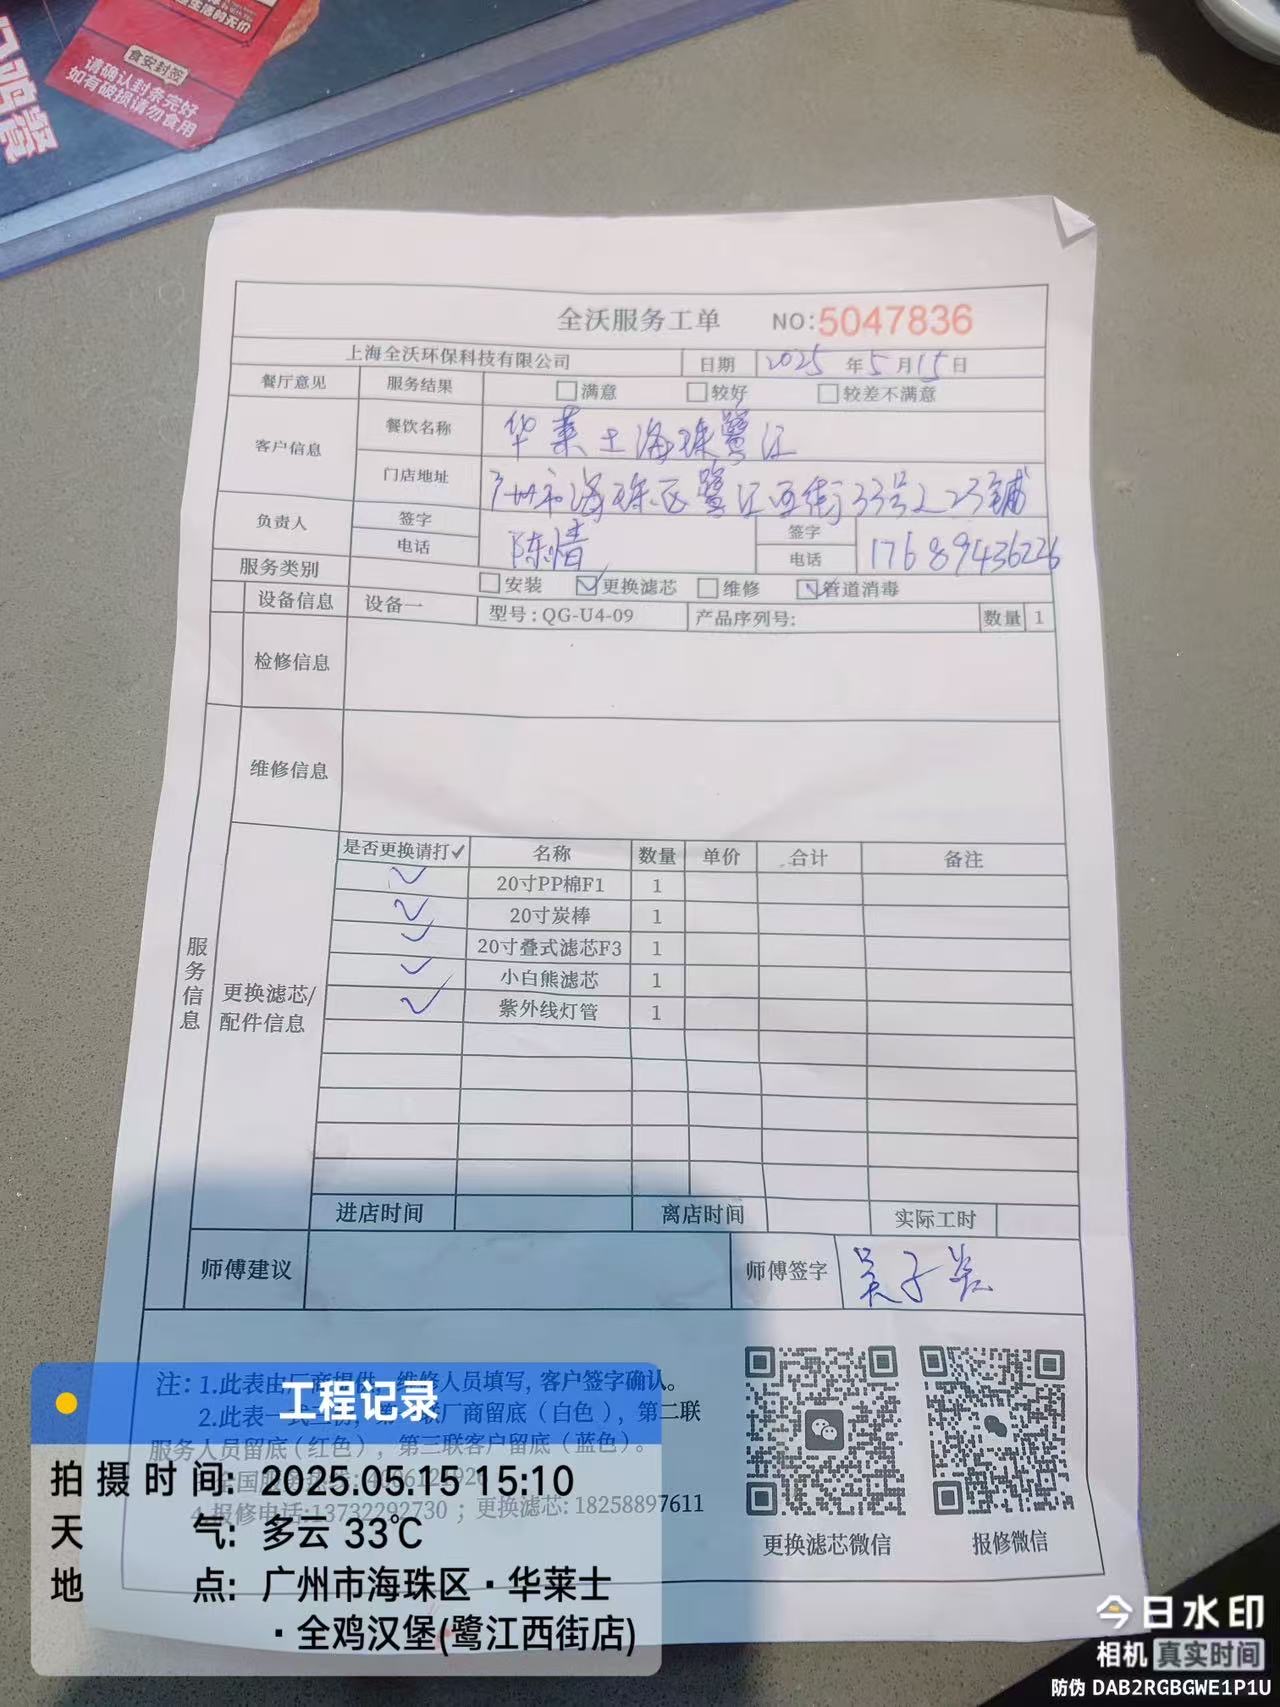 生活的无价
食安封签
请确认封条完好
如有破损请勿食用
全沃服务工单 NO:5047836
上海全沃环保科技有限公司 日期 2025 年 5 月 15 日
餐厅意见 服务结果 满意 较好 较差不满意
客户信息 餐饮名称 华莱士海珠鹭江
门店地址 广州市海珠区鹭江西街33号223铺
负责人 签字 电话 陈情 签字 电话 17689436226
服务类别 安装 更换滤芯 维修 管道消毒
设备信息 设备一 型号:QG-U4-09 产品序列号: 数量 1
检修信息
维修信息
服务信息
更换滤芯/
配件信息
是否更换请打✓ 名称 数量 单价 合计 备注
✓ 20寸PP棉F1 1
✓ 20寸炭棒 1
✓ 20寸叠式滤芯F3 1
✓ 小白熊滤芯 1
✓ 紫外线灯管 1
进店时间 离店时间 实际工时
师傅建议 师傅签字
注: 1.此表由厂商提供, 维修人员填写, 客户签字确认。
2.此表一式三份, 第一联厂商留底(白色), 第二联
服务人员留底(红色), 第三联客户留底(蓝色)。
4.报修电话:13732292730 ; 更换滤芯: 18258897611
更换滤芯微信 报修微信
工程记录
拍摄时间: 2025.05.15 15:10
天气: 多云 33℃
地点: 广州市海珠区·华莱士
·全鸡汉堡(鹭江西街店)
今日水印
相机 真实时间
防伪 DAB2RGBGWE1P1U